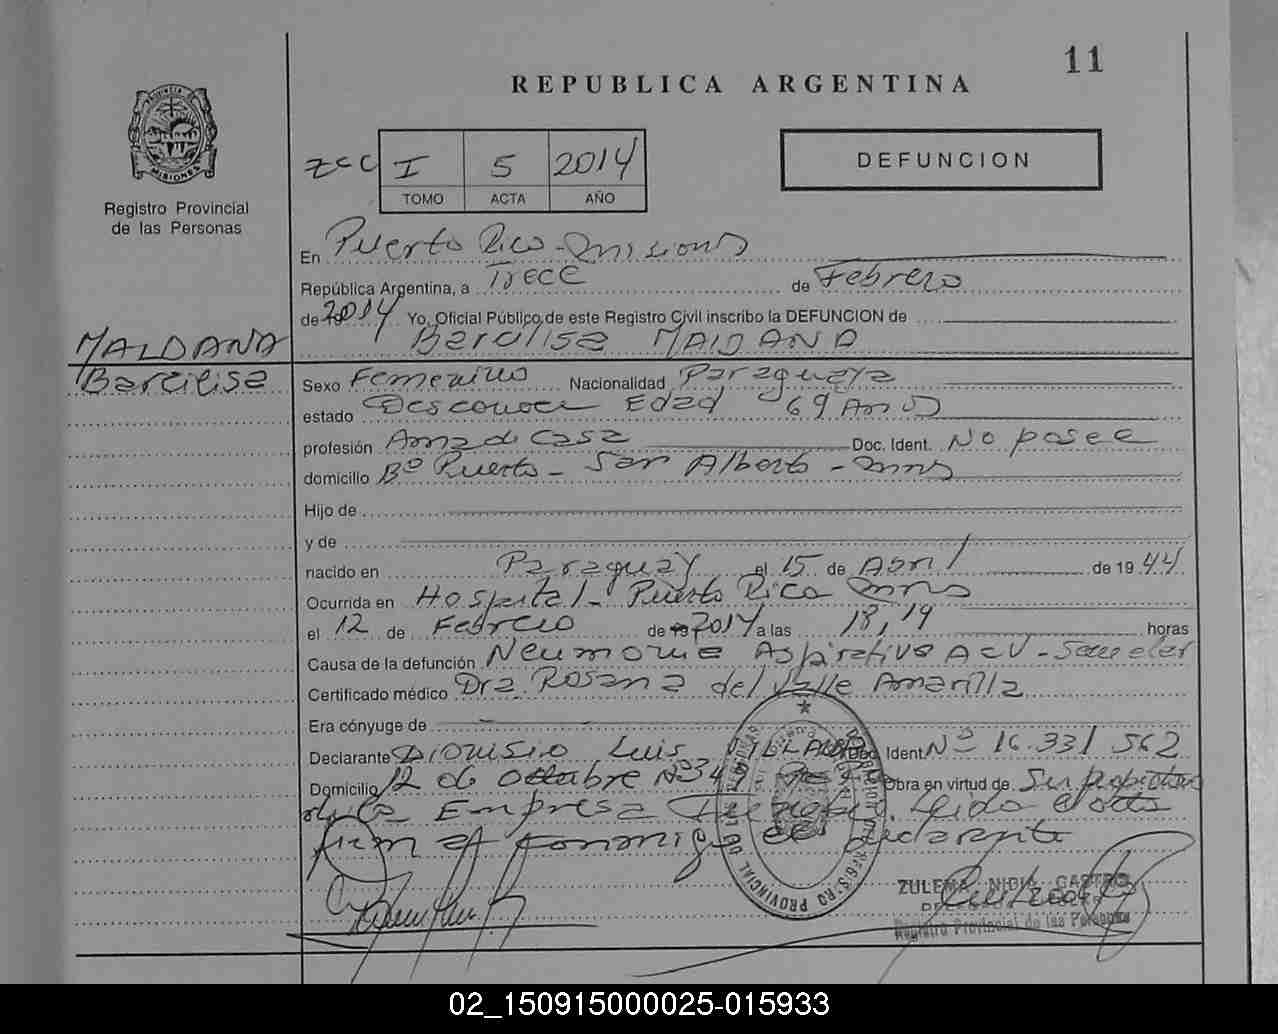 11
REPUBLICA ARGENTINA
PROVINCIA DE MISIONES
Registro Provincial
de las Personas
I 5 2014
TOMO ACTA AÑO
DEFUNCION
En Puerto Rico - Misiones
República Argentina, a Trece de Febrero
de 19 2014 Yo, Oficial Público de este Registro Civil inscribo la DEFUNCION de
Barcilisa MALDANA
MALDANA
Barcilisa
Sexo Femenino Nacionalidad Paraguaya
estado Desconoce Edad 69 Años
profesión Ama de Casa Doc. Ident. No posee
domicilio Bº Puerto - San Alberto - Mnes
Hijo de
y de
nacido en Paraguay el 15 de Abril de 1944
Ocurrida en Hospital - Puerto Rico Mnes
el 12 de Febrero de 19 2014 a las 18,19 horas
Causa de la defunción Neumonie Aspirativa ACV -
Certificado médico Dra. Rosana del Valle Amarilla
Era cónyuge de
Declarante Dionisio Luis Doc. Ident. Nº 16.331.562
Domicilio 12 de Octubre Nº Obra en virtud de
de la Empresa Leido
firma conmigo el declarante
ZULEMA NIDIA CASTRO
Registro Provincial de las Personas
02_150915000025-015933